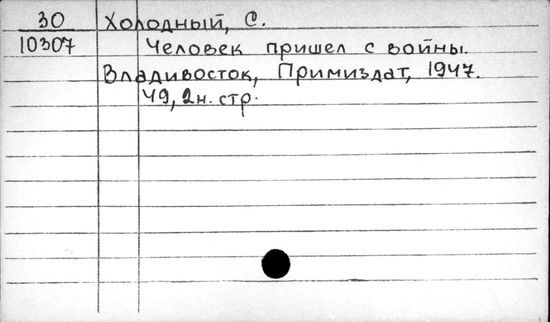 30 Холодный, С.
10307 Человек пришел с войны.
Владивосток, Примиздат, 1947.
49, 2н. стр.